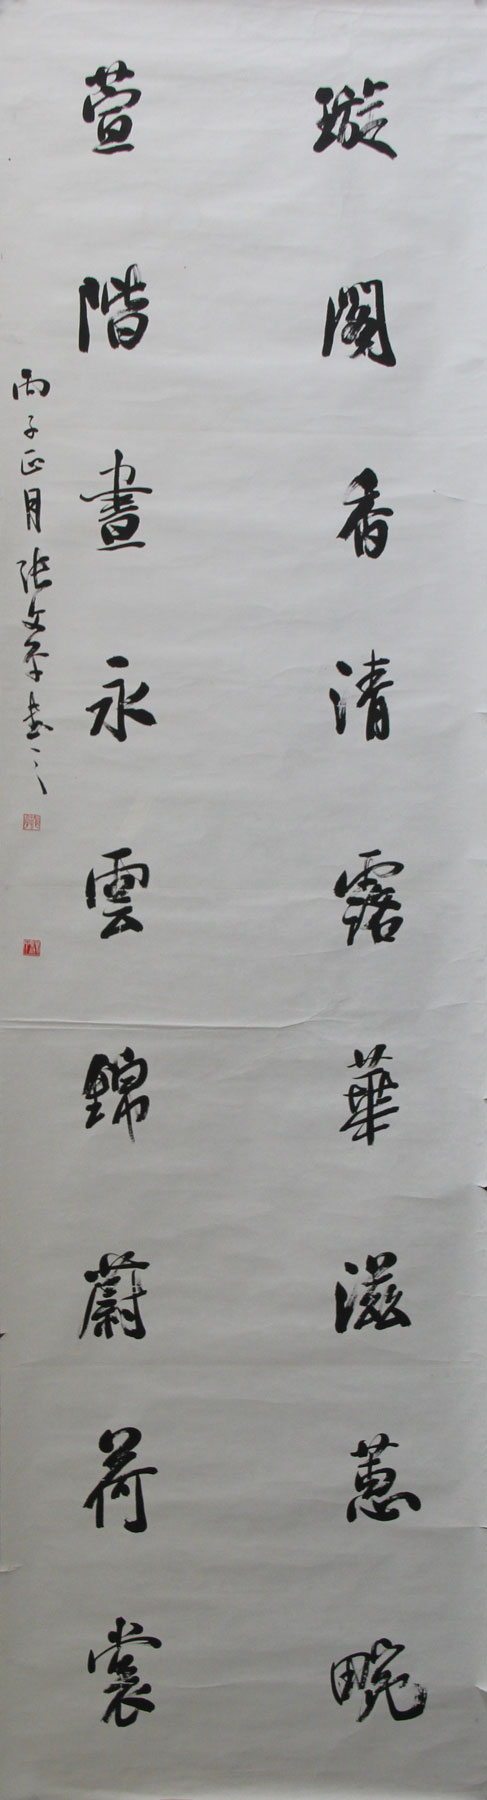 璇閣香清露華滋蕙畹
萱階晝永雲錦蔚荷裳
丙子正月張文平書之